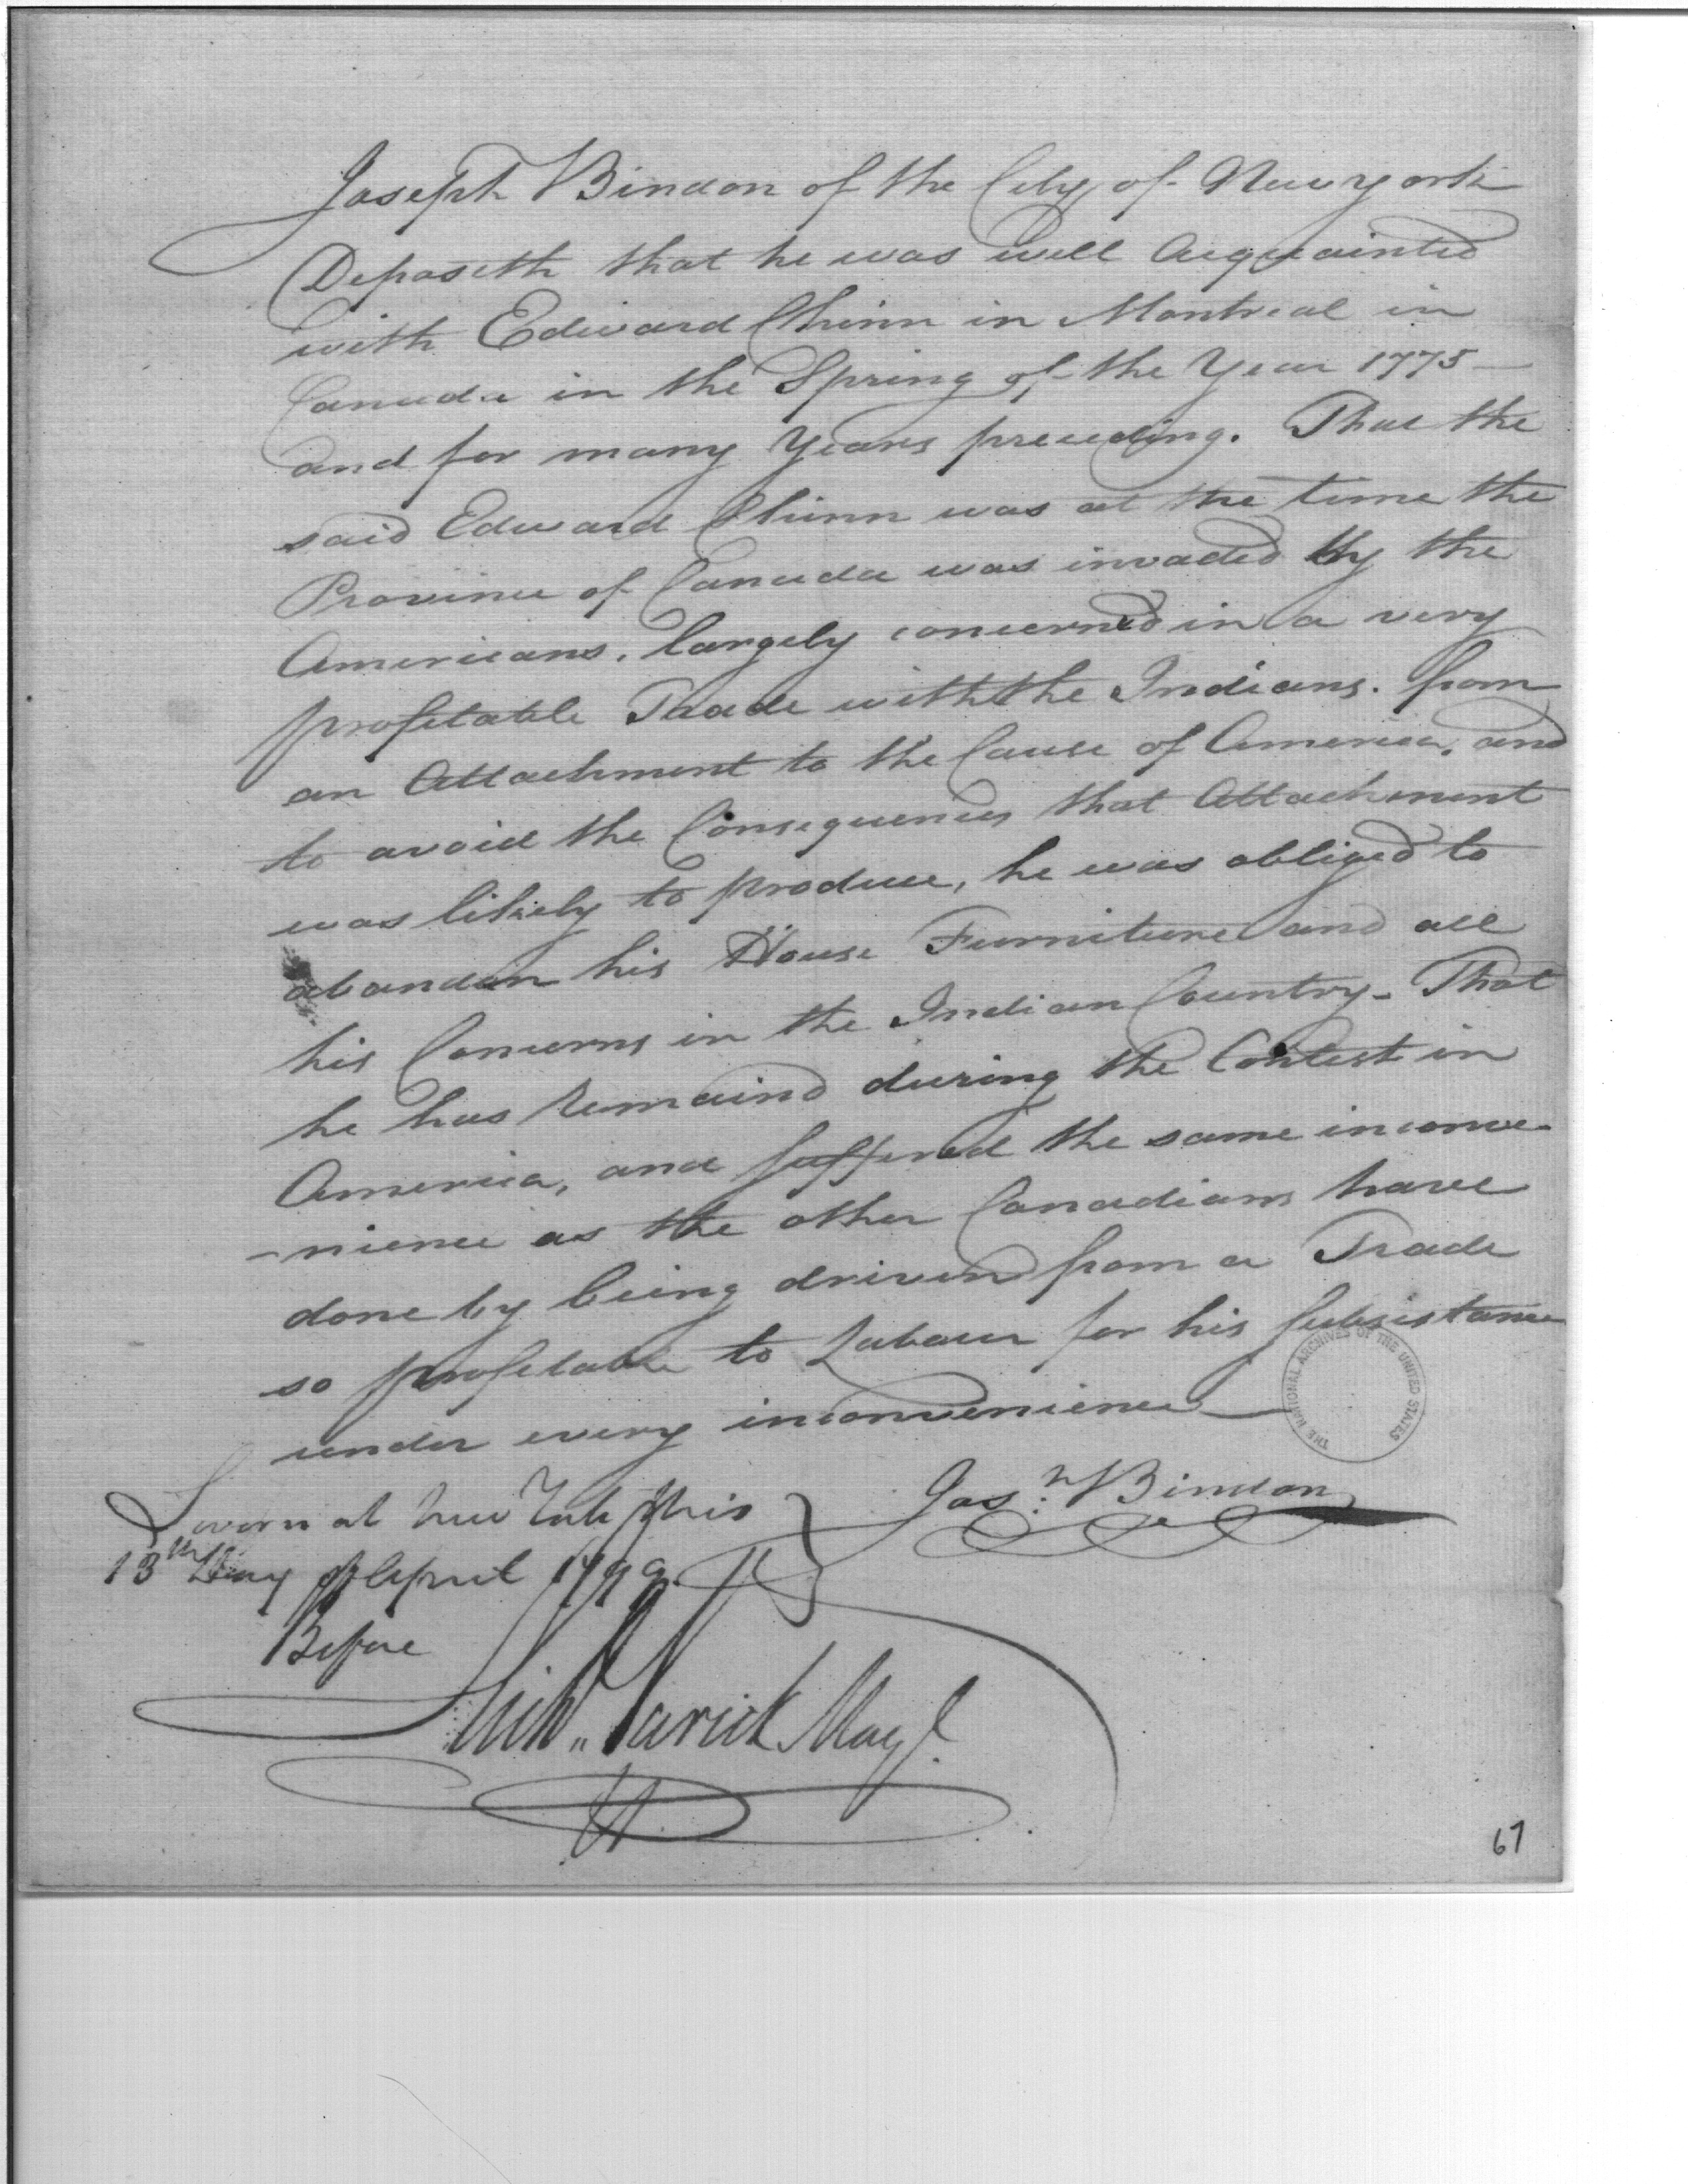 Joseph Bindon of the City of Newyork
Deposeth that he was well Acquainted
with Edward Chinn in Montreal in
Canada in the Spring of the Year 1775 —
and for many Years preceding. That the
said Edward Chinn was at the time the
Province of Canada was invaded by the
Americans, largely concerned in a very
profitable Trade with the Indians. from
an Attachment to the Cause of America, and
to avoid the Consequences that Attachment
was likely to produce, he was obliged to
abandon his House Furniture and all
his Concerns in the Indian Country - That
he has remaind during the Contest in
America, and suffered the same inconve-
-nience as the other Canadians have
done by being driven from a Trade
so profitable to Labour for his Subsistance
under every inconvenience —
Jos:h Bindon
Sworn at New York this
13th Day of April
Before
Rich'd Varick May'r
THE NATIONAL ARCHIVES OF THE UNITED STATES
67